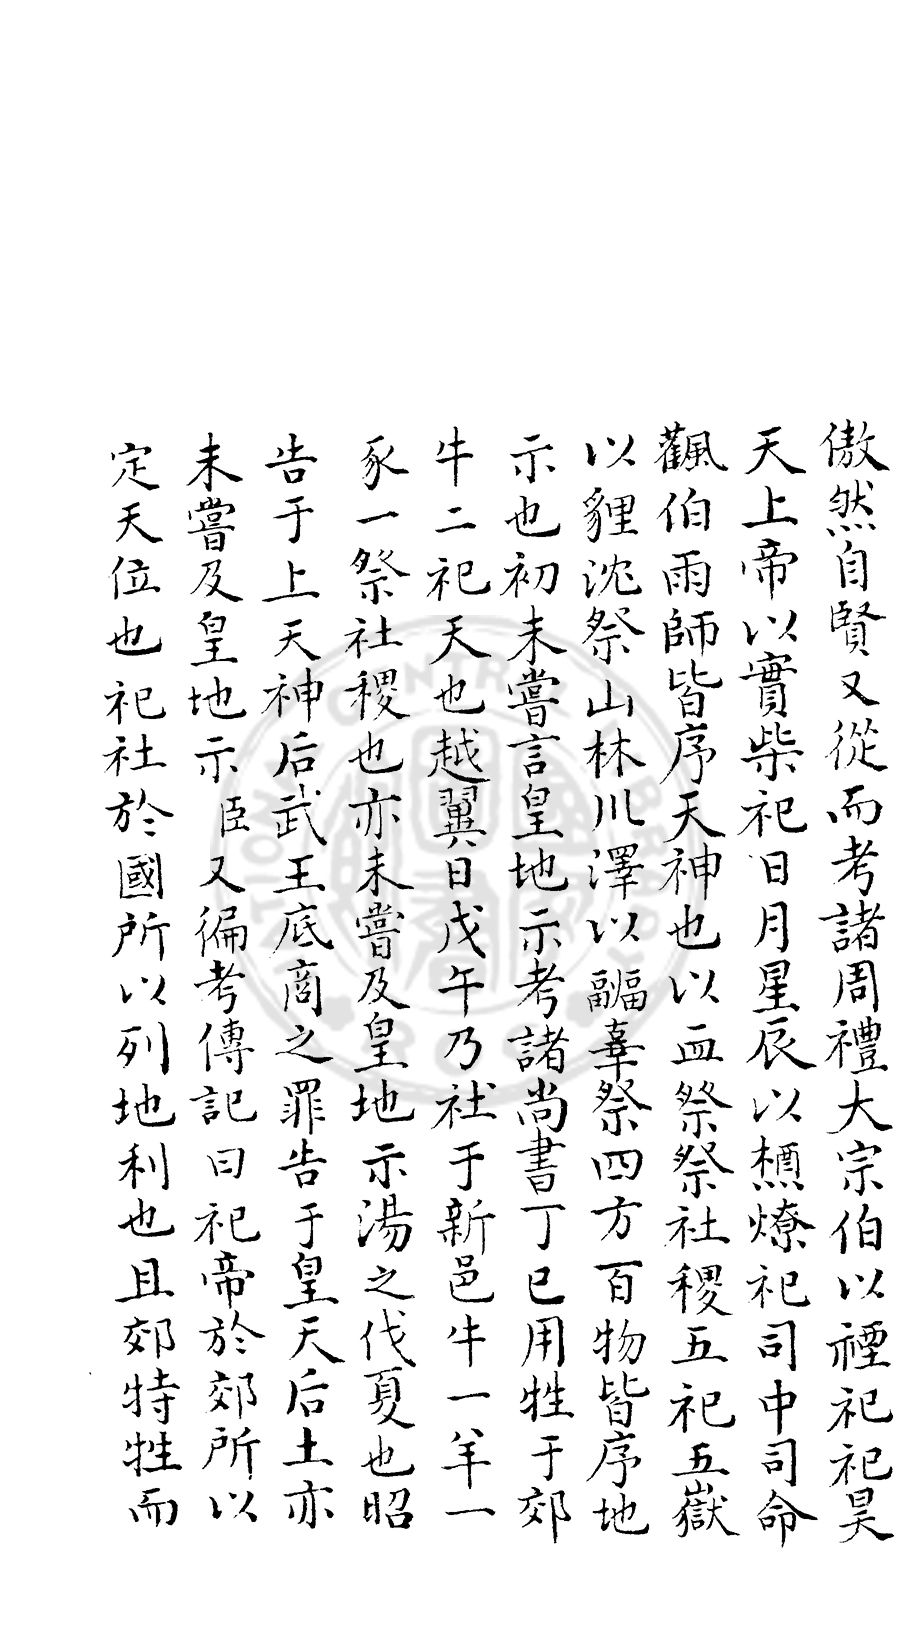 傲然自賢又從而考諸周禮大宗伯以禋祀祀昊
天上帝以實柴祀日月星辰以槱燎祀司中司命
飌伯雨師皆序天神也以血祭祭社稷五祀五嶽
以貍沈祭山林川澤以疈辜祭四方百物皆序地
示也初未嘗言皇地示考諸尚書丁巳用牲于郊
牛二祀天也越翼日戊午乃社于新邑牛一羊一
豕一祭社稷也亦未嘗及皇地示湯之伐夏也昭
告于上天神后武王底商之罪告于皇天后土亦
未嘗及皇地示臣又徧考傳記曰祀帝於郊所以
定天位也祀社於國所以列地利也且郊特牲而